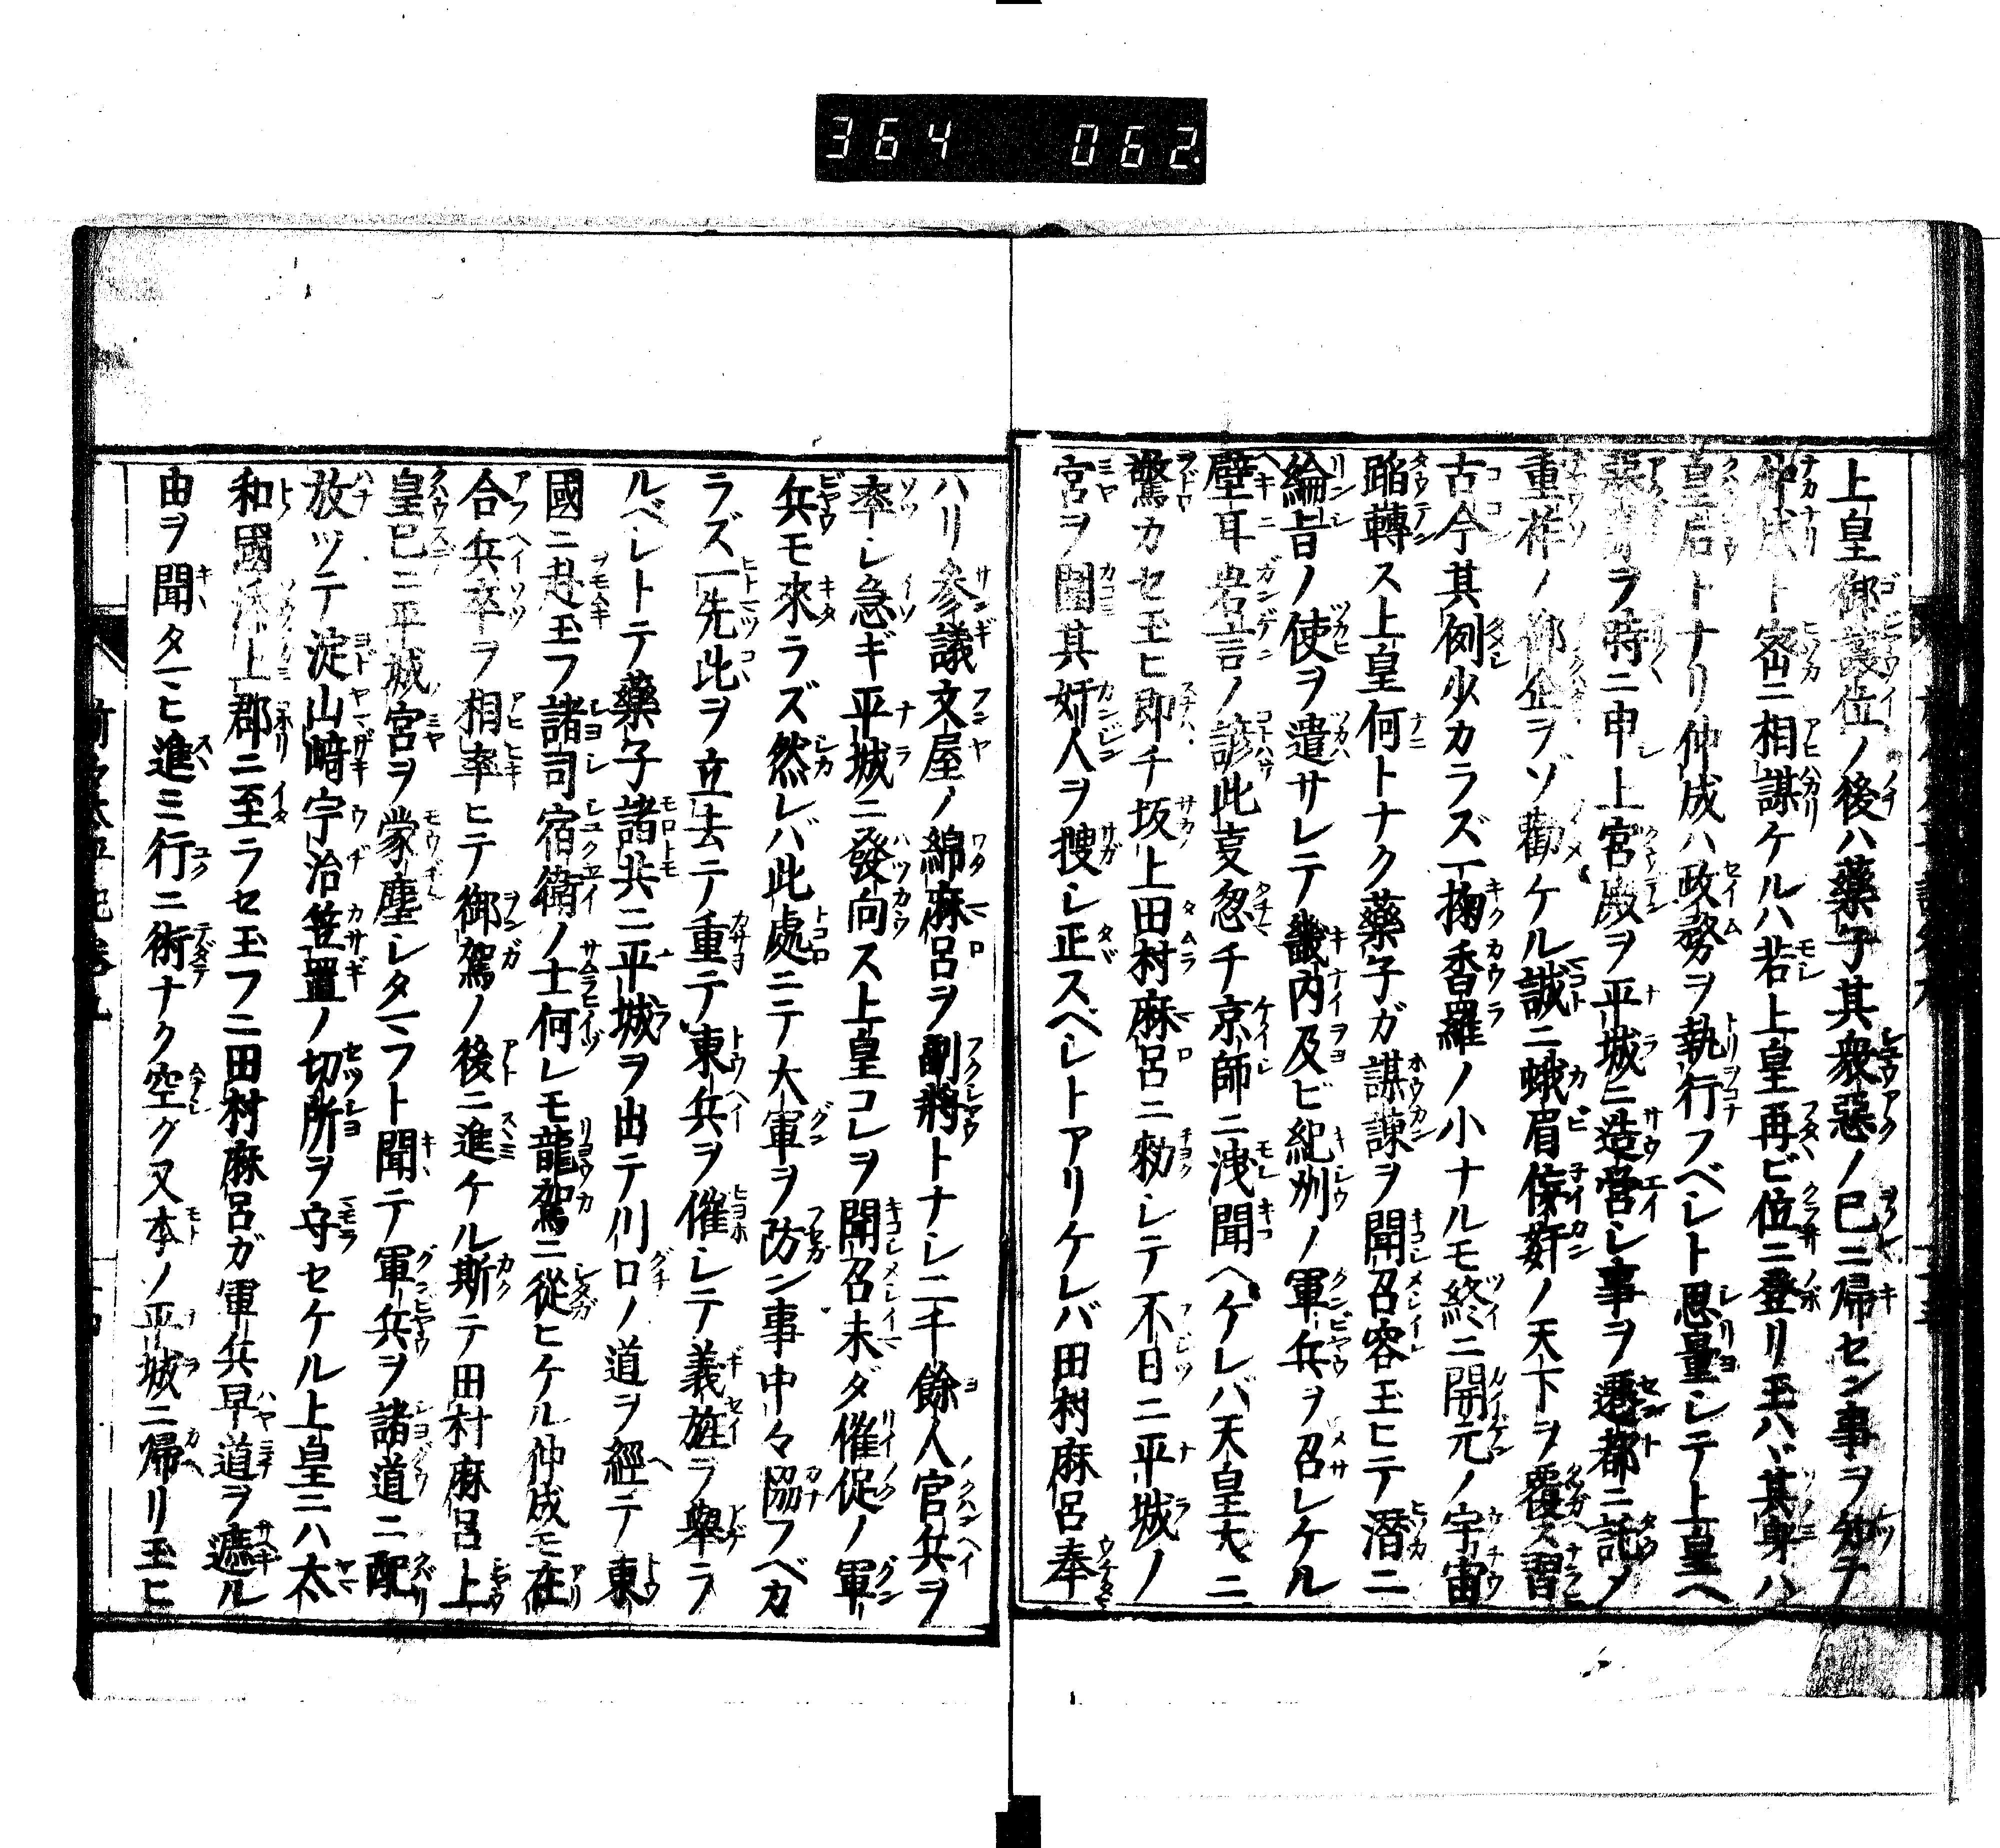 364 062.
上皇御譲位ノ後ハ藥子其衆惡ノ已ニ帰セン事ヲ知テ
仲成ト密ニ相謀ケルハ若上皇再ビ位ニ登リ玉ハヾ其身ハ
皇后トナリ仲成ハ政務ヲ執行フベシト思量シテ上皇ヘ
ヲ時ニ申上宮殿ヲ平城ニ造営シ事ヲ遷都ニ託メ
重祚ノ御企ヲゾ勸メケル誠ニ蛾眉佞奸ノ天下ヲ覆ス習
古今其例少カラズ一掬香羅ノ小ナルモ終ニ開元ノ宇宙
蹈轉ス上皇何トナク藥子ガ謀諫ヲ聞召容玉ヒテ潜ニ
綸旨ノ使ヲ遣サレテ畿内及ビ紀州ノ軍兵ヲ召レケル
壁耳岩言ノ諺此叓忽チ京師ニ洩聞ヘケレバ天皇大ニ
驚カセ玉ヒ即チ坂上田村麻呂ニ勅シテ不日ニ平城ノ
宮ヲ圍其奸人ヲ捜シ正スベシトアリケレバ田村麻呂奉
ハリ参議文屋ノ綿麻呂ヲ副將トナシ二千餘人官兵ヲ
率シ急ギ平城ニ發向ス上皇コレヲ聞召未ダ催促ノ軍
兵モ來ラズ然レバ此處ニテ大軍ヲ防ン事中々協フベカ
ラズ一先此ヲ立去テ重テ東兵ヲ催シテ義旌ヲ舉ラ
ルベシトテ藥子諸共ニ平城ヲ出テ川口ノ道ヲ經テ東
國ニ赴玉フ諸司宿衛ノ士何レモ龍駕ニ從ヒケル仲成モ在
合兵卒ヲ相率ヒテ御駕ノ後ニ進ケル斯テ田村麻呂上
皇已ニ平城宮ヲ蒙塵シタマフト聞テ軍兵ヲ諸道ニ配
放ツテ淀山﨑宇治笠置ノ切所ヲ守セケル上皇ニハ太
和國添上郡ニ至ラセ玉フニ田村麻呂ガ軍兵早道ヲ遮ル
由ヲ聞タマヒ進ミ行ニ術ナク空ク又本ノ平城ニ帰リ玉ヒ